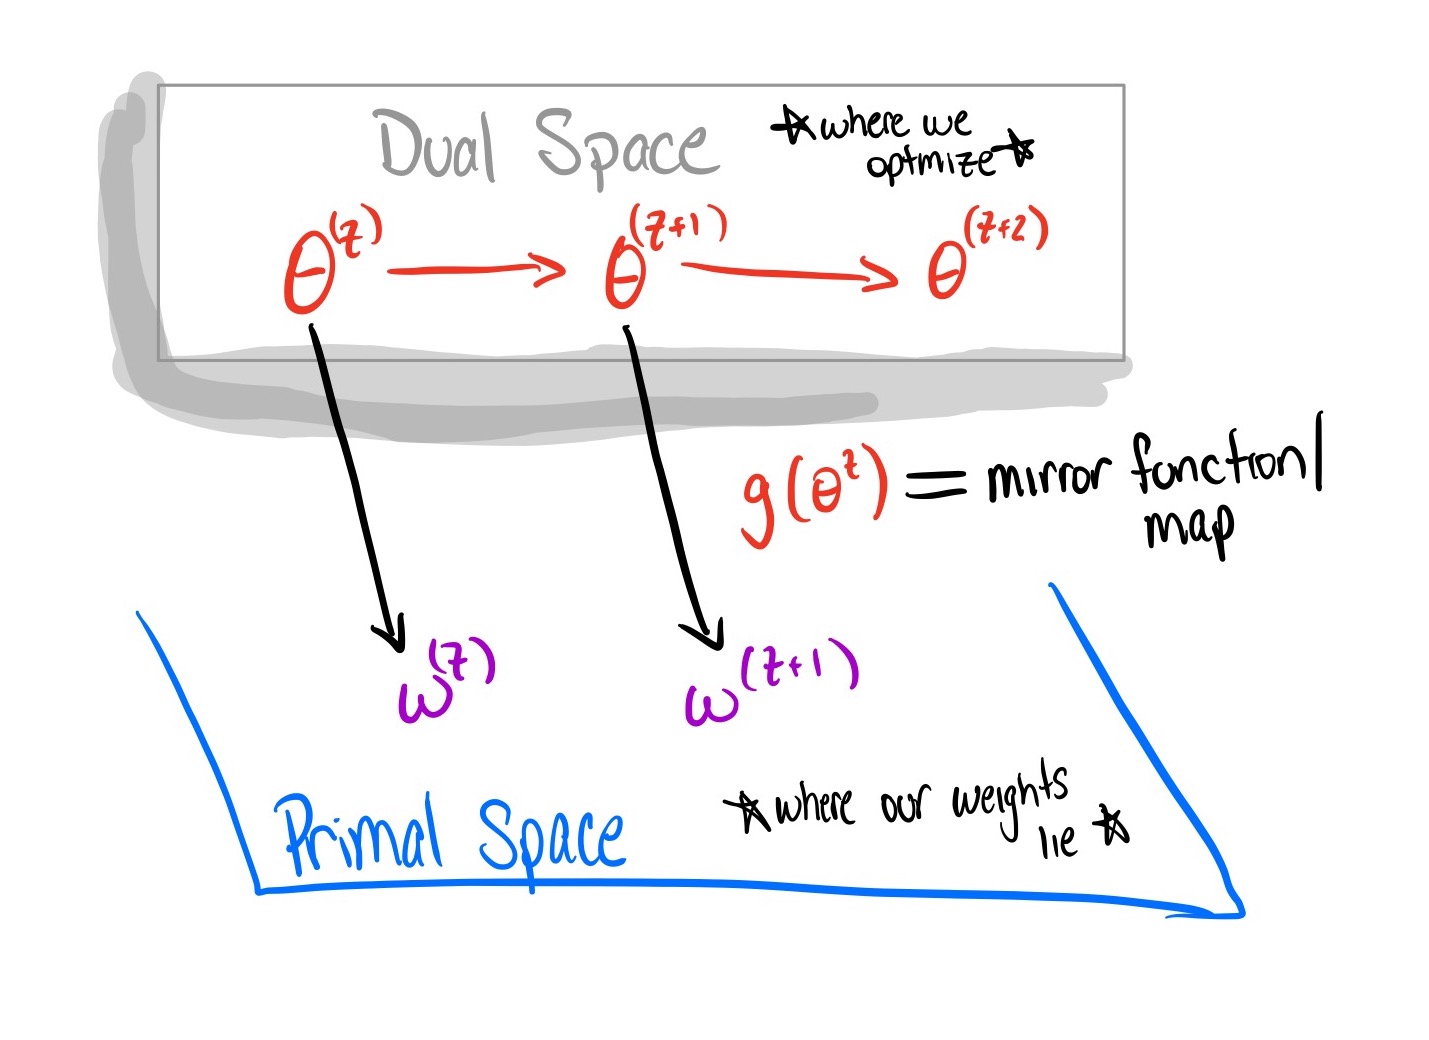 Dual Space
☆where we
optmize☆
θ^(z) → θ^(z+1) → θ^(z+2)
g(θ^z) = mirror function/
map
ω^(z)
ω^(z+1)
Primal Space
☆where our weights
lie☆